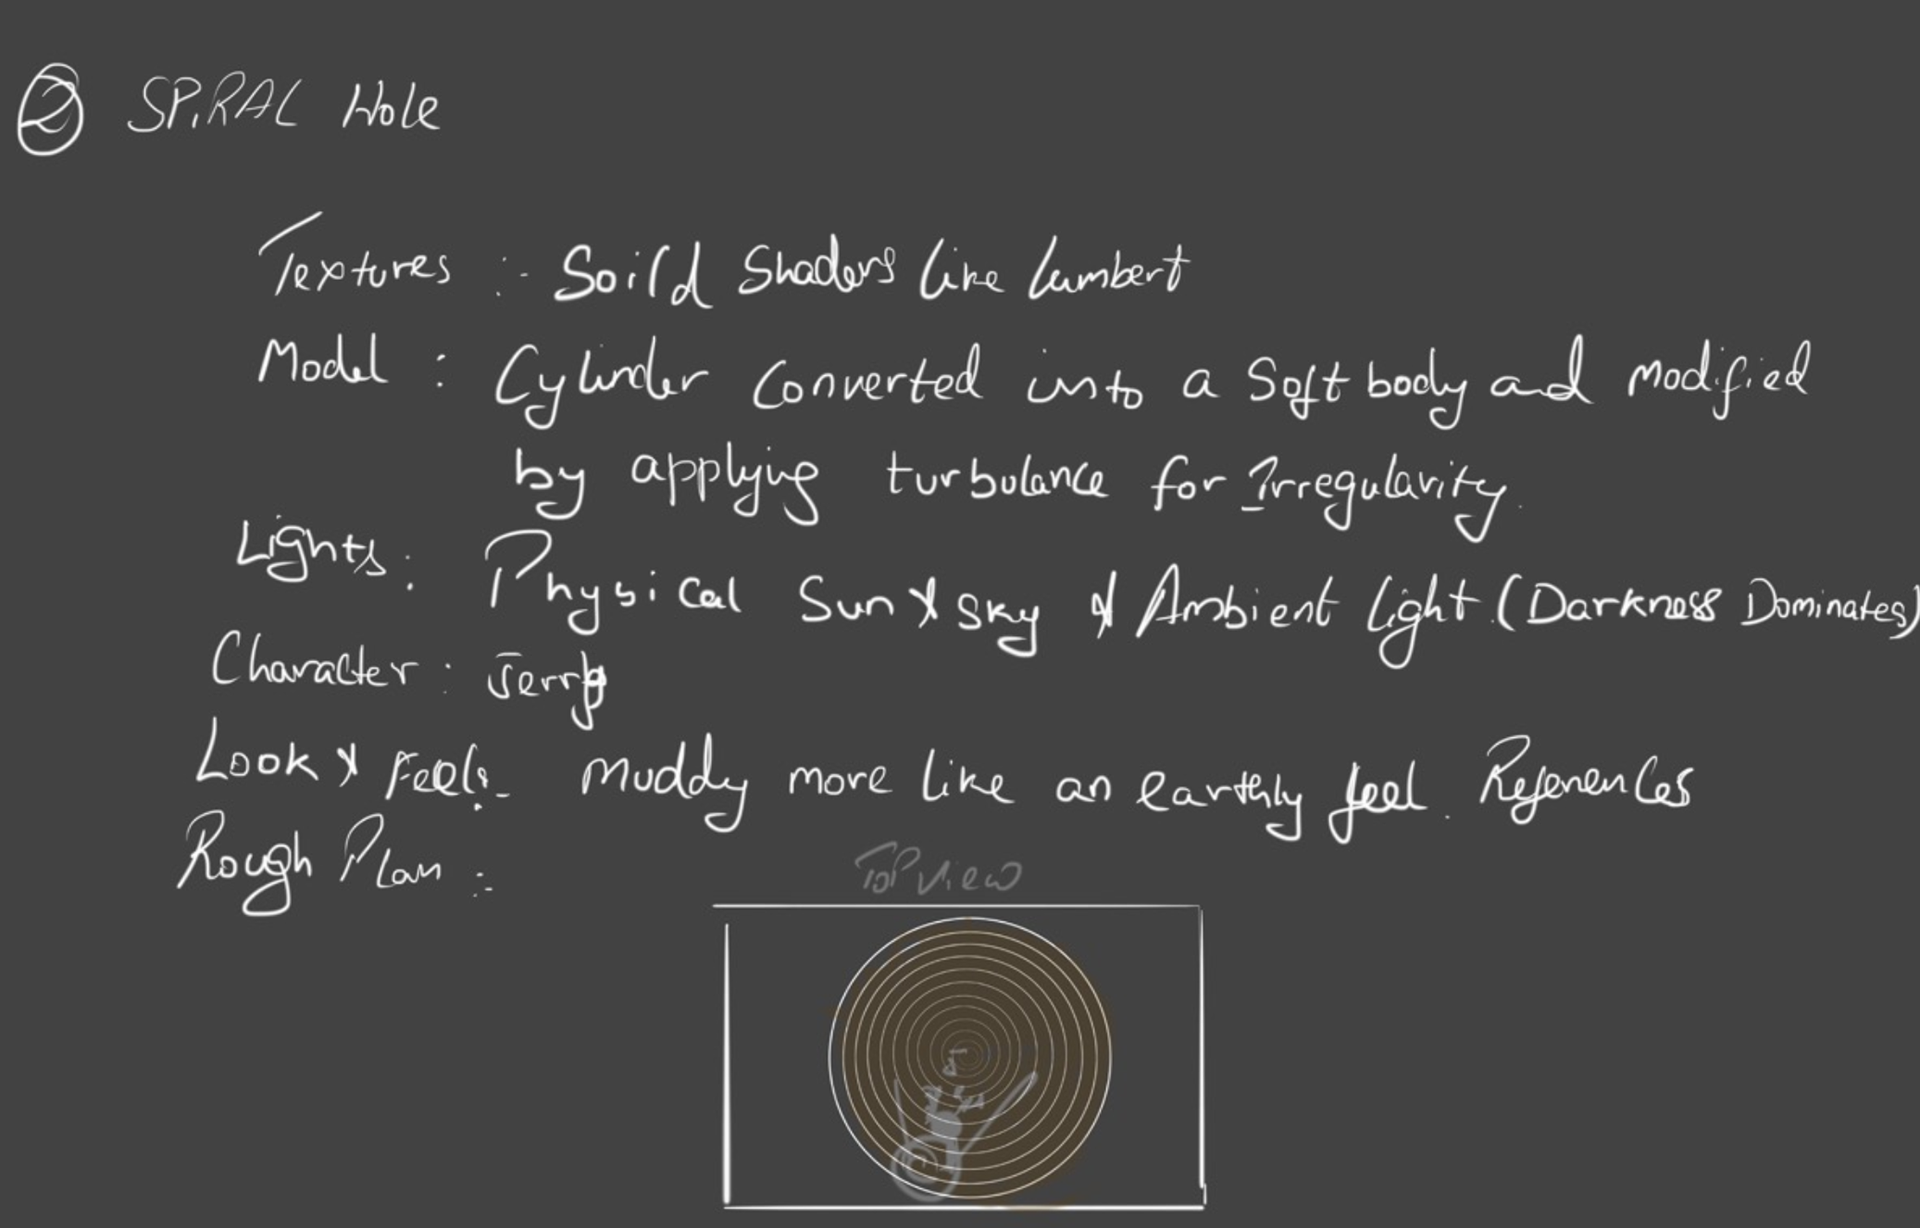 ② SPIRAL Hole
Textures :- Soild Shaders like lambert
Model : Cylinder Converted into a Soft body and modified
by applying turbulance for Irregularity.
Lights : Physical Sun & Sky & Ambient light. (Darkness Dominates)
Character : Jerry
Look & Feel :- Muddy more like an earthly feel. References
Rough Plan :-
TOP View